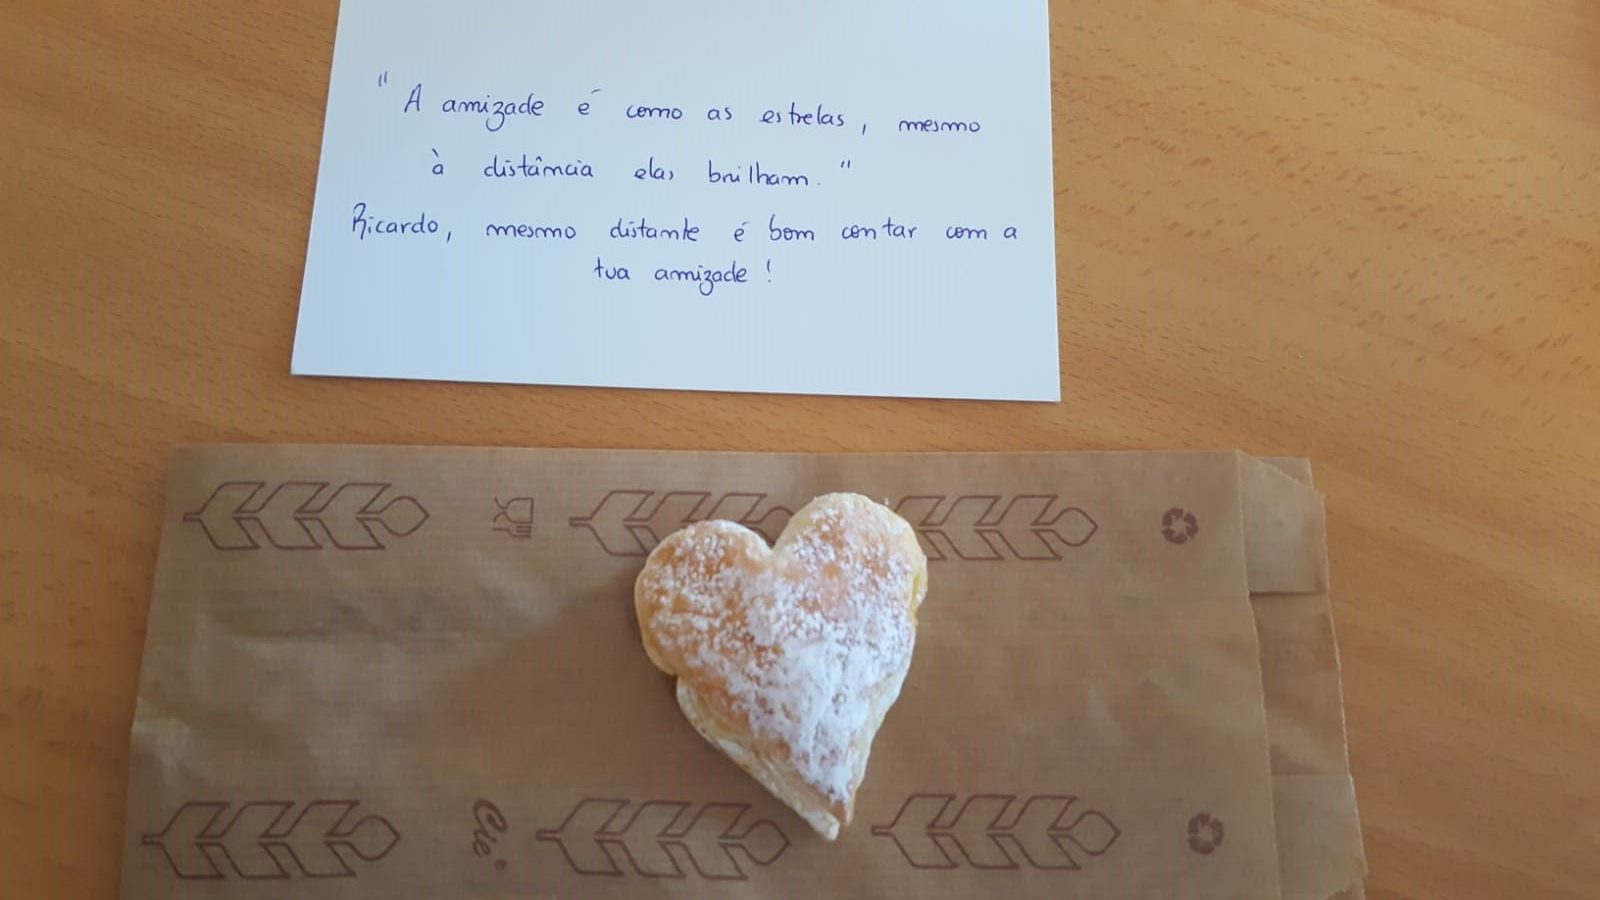 "A amizade é como as estrelas, mesmo
à distância elas brilham."
Ricardo, mesmo distante é bom contar com a
tua amizade!
Cie®